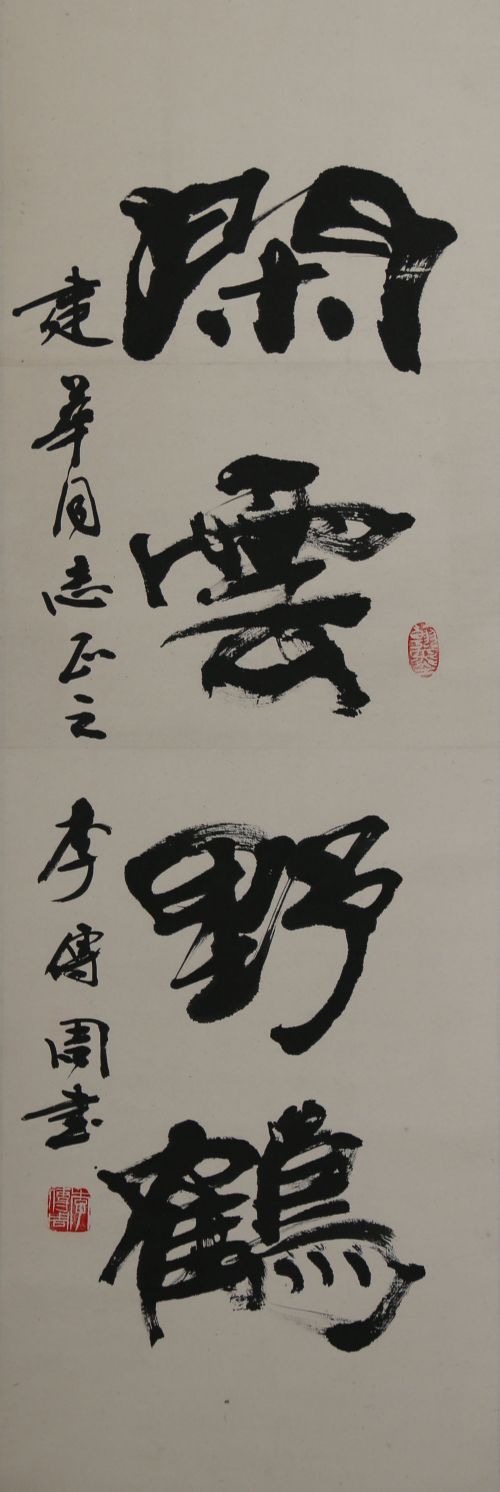 閑雲野鶴
建華同志正之
李傳周書